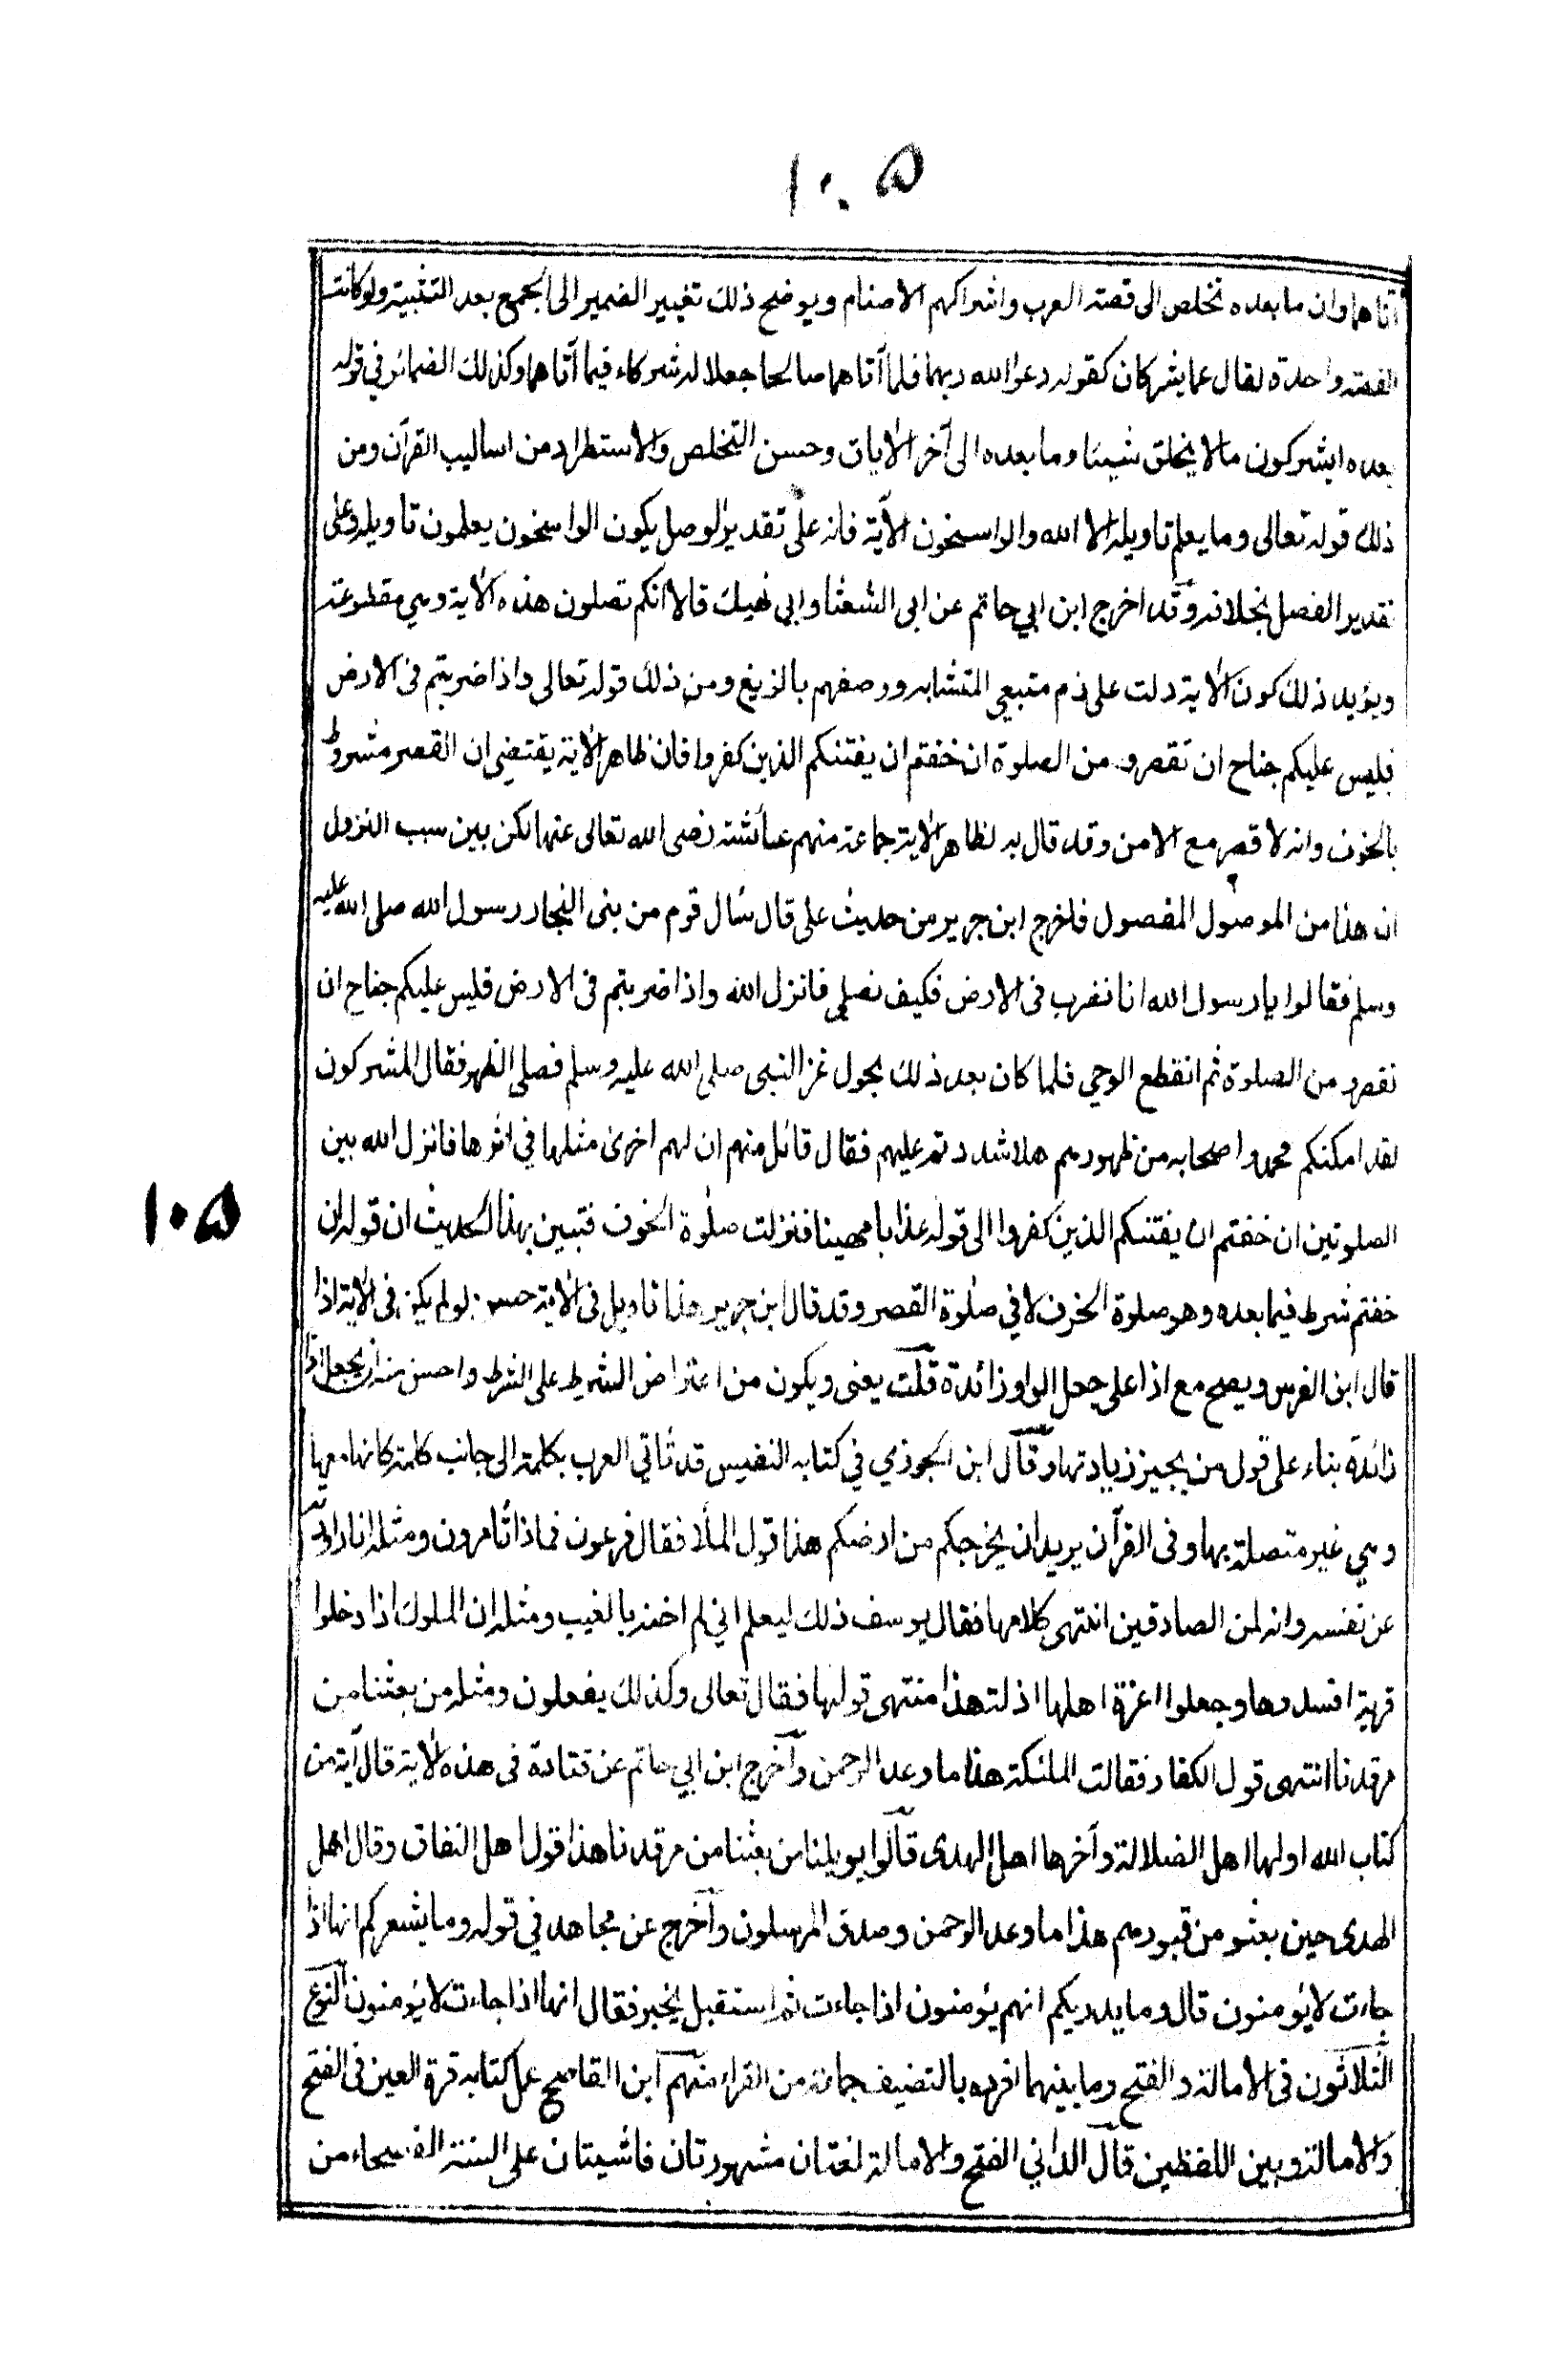 ١٠٥
آتاهما وان ما بعده تخلص الى قصة العرب واشراكهم الاصنام ويوضح ذلك تغيير الضمير الى الجمع بعد التثنية ولو كانت
القصة واحدة لقال عما يشركان كقوله دعوا الله ربهما فلما آتاهما صالحا جعلا له شركاء فيما آتاهما وكذلك الضمائر في قوله
بعده ايشركون مالا يخلق شيئا وما بعده الى آخر الآيات وحسن التخلص والاستطراد من اساليب القرآن ومن
ذلك قوله تعالى وما يعلم تاويله الا الله والراسخون الآية فانه على تقدير الوصل يكون الراسخون يعلمون تاويله وعلى
تقدير الفصل بخلافه وقد اخرج ابن ابي حاتم عن ابى الشعثا وابي نهيك قالا انكم تصلون هذه الآية وهي مقطوعة
ويؤيد ذلك كون الآية دلت على ذم متبعي المتشابه ووصفهم بالزيغ ومن ذلك قوله تعالى واذا ضربتم فى الارض
فليس عليكم جناح ان تقصروا من الصلوة ان خفتم ان يفتنكم الذين كفروا فان ظاهر الآية يقتضي ان القصر مشروط
بالخوف وانه لا قصر مع الامن وقد قال به لظاهر الآية جماعة منهم عائشة رضى الله تعالى عنها لكن بين سبب النزول
ان هذا من الموصول المفصول فاخرج ابن جرير من حديث على قال سأل قوم من بنى النجار رسول الله صلى الله عليه
وسلم فقالوا يا رسول الله انا نضرب فى الارض فكيف نصلي فانزل الله واذا ضربتم فى الارض فليس عليكم جناح ان
تقصروا من الصلوة ثم انقطع الوحي فلما كان بعد ذلك بحول غز النبى صلى الله عليه وسلم فصلى الظهر فقال المشركون
لقد امكنكم محمد واصحابه من ظهورهم هلا شددتم عليهم فقال قائل منهم ان لهم اخرى مثلها في اثرها فانزل الله بين
الصلوتين ان خفتم ان يفتنكم الذين كفروا الى قوله عذابا مهينا فنزلت صلوة الخوف فتبين بهذا الحديث ان قوله ان
خفتم شرط فيما بعده وهو صلوة الخوف لا في صلوة القصر وقد قال ابن جرير هذا تاويل فى الآية حسن لو لم يكن فى الآية اذا
قال ابن الفرس ويصح مع اذا على جعل الواو زائدة قلت يعنى ويكون من اعتراض الشرط على الشرط واحسن منه ان يجعل اذا
زائدة بناء على قول من يجيز زيادتها وقال ابن الجوزي في كتابه النفيس قد تاتي العرب بكلمة الى جانب كلمة كانها معها
وهي غير متصلة بها وفى القرآن يريد ان يخرجكم من ارضكم هذا قول الملأ فقال فرعون فماذا تامرون ومثله انا راودته
عن نفسه وانه لمن الصادقين انتهى كلامها فقال يوسف ذلك ليعلم اني لم اخنه بالغيب ومثله ان الملوك اذا دخلوا
قرية افسدوها وجعلوا اعزة اهلها اذلة هذا منتهى قولها فقال تعالى وكذلك يفعلون ومثله من بعثنا من
مرقدنا انتهى قول الكفار فقالت الملئكة هذا ما وعد الرحمن وآخرج ابن ابي حاتم عن قتادة فى هذه الآية قال آية من
كتاب الله اولها اهل الضلالة وآخرها اهل الهدى قالوا يويلنا من بعثنا من مرقدنا هذا قول اهل النفاق وقال اهل
الهدى حين بعثو من قبورهم هذا ما وعد الرحمن وصدق المرسلون وآخرج عن مجاهد في قوله وما يشعركم انها اذا
جاءت لا يؤمنون قال وما يدريكم انهم يؤمنون اذا جاءت ثم استقبل يخبر فقال انها اذا جاءت لا يؤمنون النوع
الثلاثون فى الامالة والفتح وما بينهما افرده بالتصنيف جماعة من القراء منهم ابن القاصح عمل كتابه قرة العين فى الفتح
والامالة وبين اللفظين قال الداني الفتح والامالة لغتان مشهورتان فاشيتان على السنة الفصحاء من
١٠٥